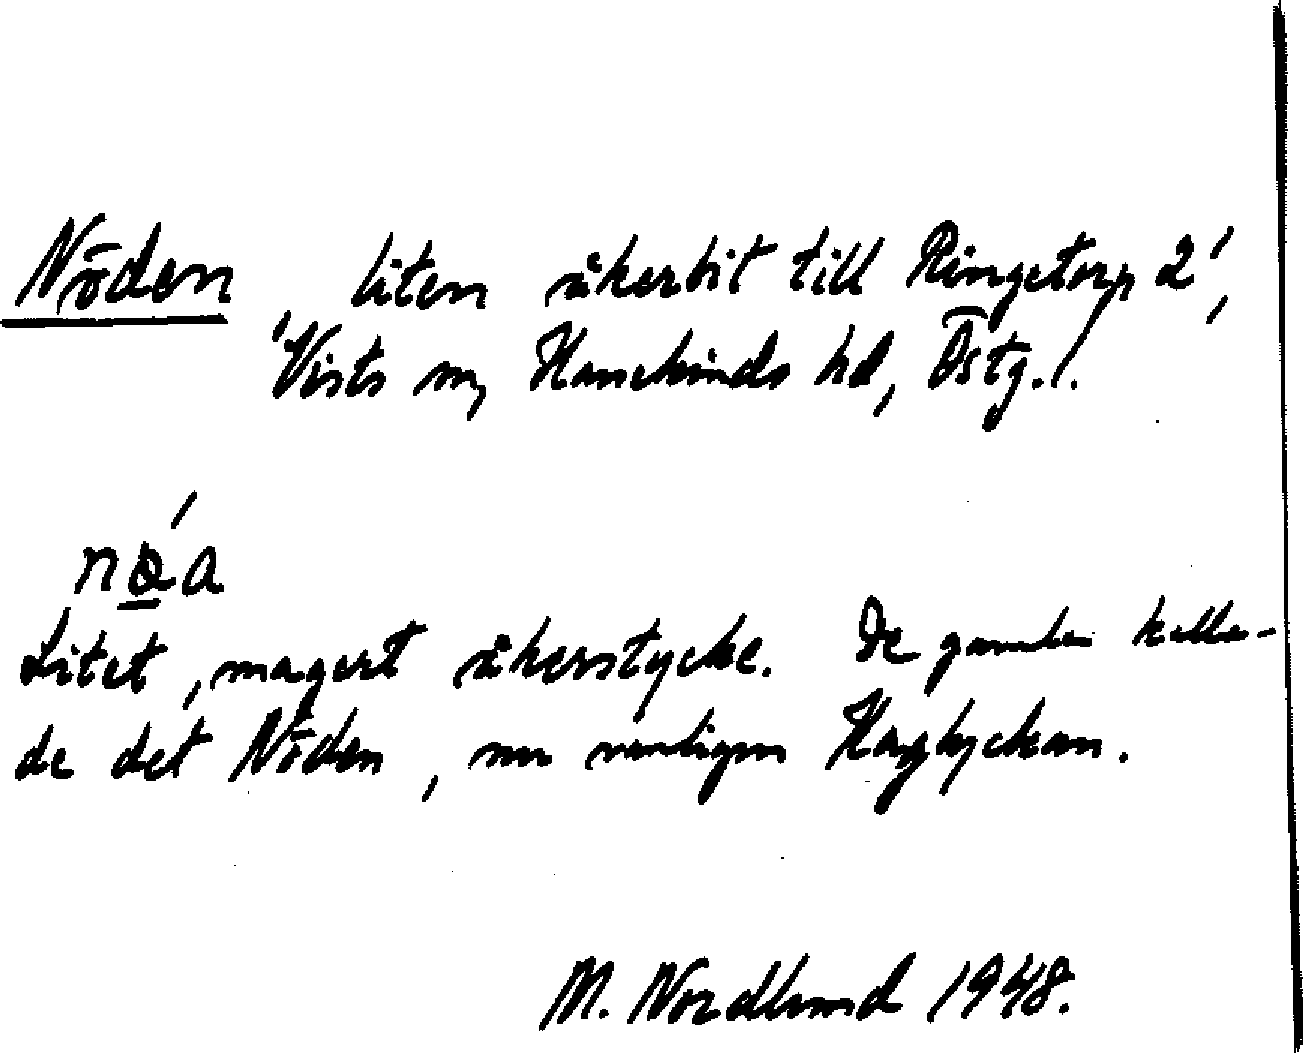 Nöden, liten åkerbit till Ringetorp 2',
Vists sn, Hanekinds hd, Östg.l.
nǿ̱a
Litet, magert åkerstycke. De gamla kalla-
de det Nöden, nu vanligen Haglyckan.
M. Nordlund 1948.